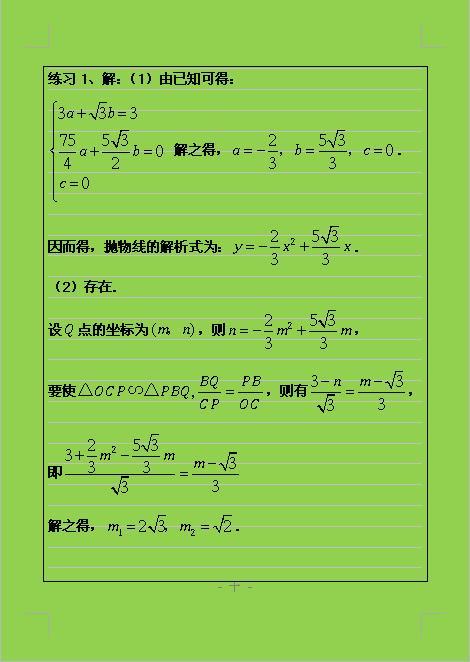 练习1、解:(1)由已知可得:
3a+√3b=3
75/4 a+5√3/2 b=0 解之得,a=-2/3,b=5√3/3,c=0.
c=0
因而得,抛物线的解析式为:y=-2/3 x²+5√3/3 x.
(2)存在.
设Q点的坐标为(m,n),则n=-2/3 m²+5√3/3 m,
要使△OCP∽△PBQ,BQ/CP=PB/OC,则有(3-n)/√3=(m-√3)/3,
即(3+2/3 m²-5√3/3 m)/√3=(m-√3)/3
解之得,m₁=2√3,m₂=√2.
- 十 -